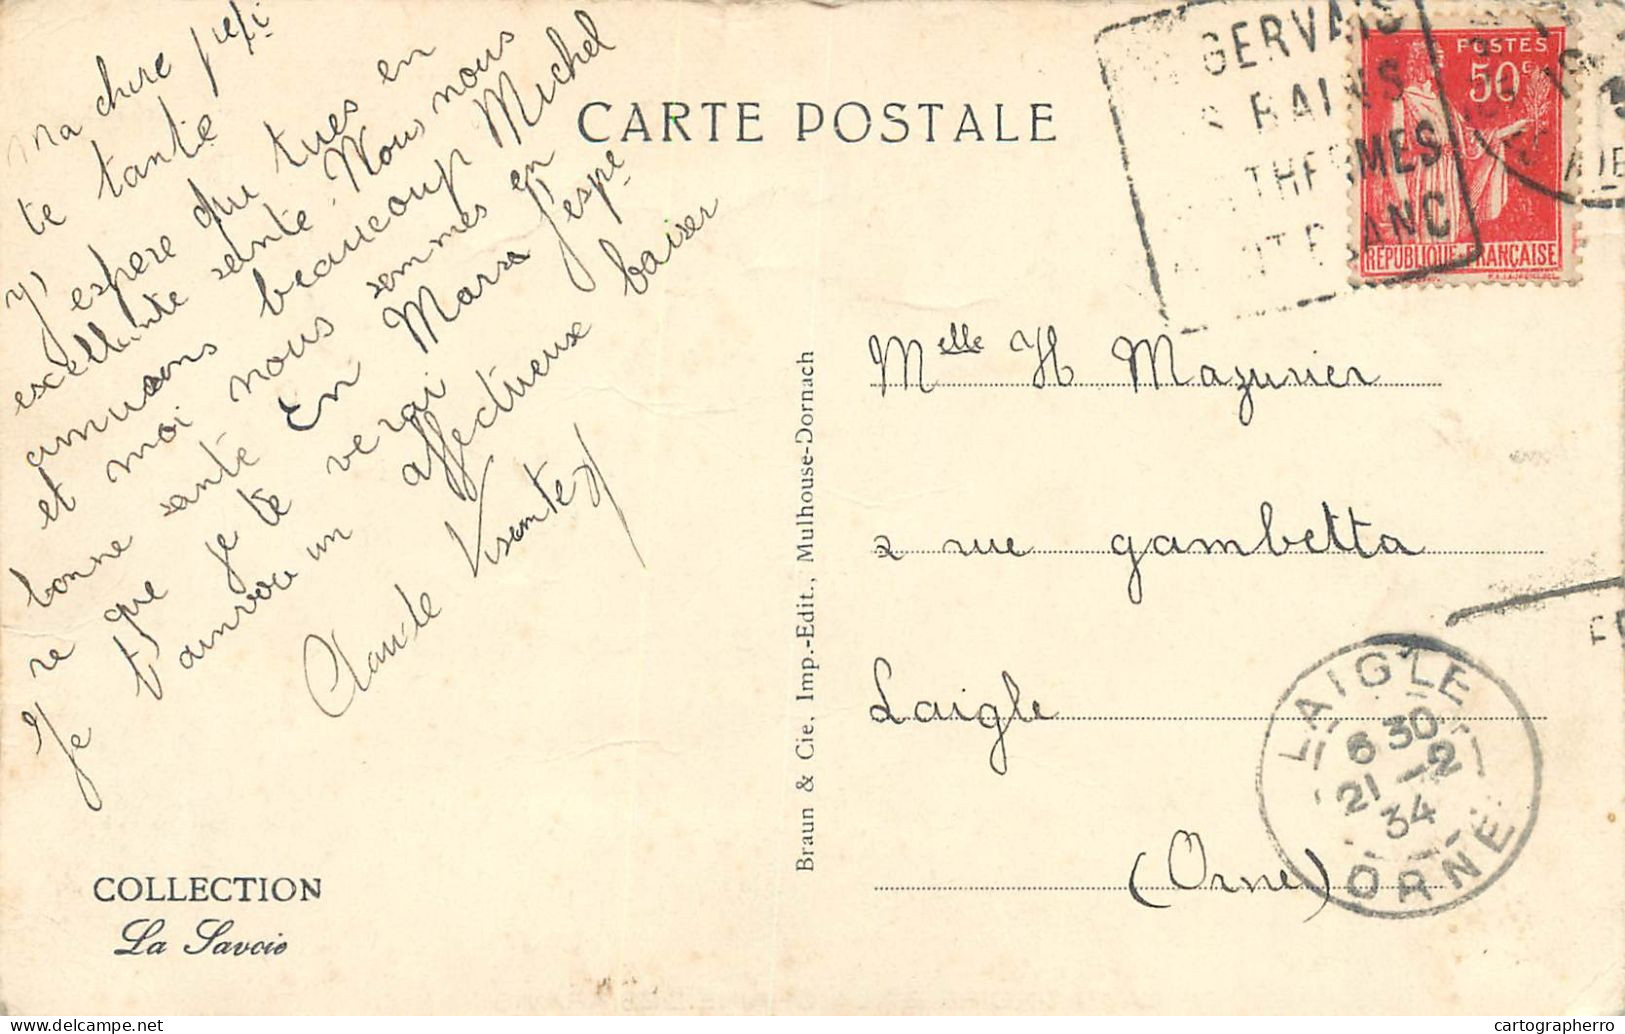 Ma chere peti
te tante
J'espere que tues en
excellante sante. Nous nous
amusons beaucoup Michel
et moi nous sommes en
bonne santé En Mars J'espe
re que je te verai
Je t'anvoie un affectueux baiser
Claude Visente
CARTE POSTALE
GERVAIS
BAINS
THERMES
POSTES
50c
REPUBLIQUE FRANÇAISE
Melle H Mazurier
2 rue gambetta
Laigle
(Orne)
LAIGLE
6 30
21 -2
34
ORNE
Braun & Cie, Imp.-Edit., Mulhouse-Dornach
COLLECTION
La Savoie
delcampe.net
cartographerro